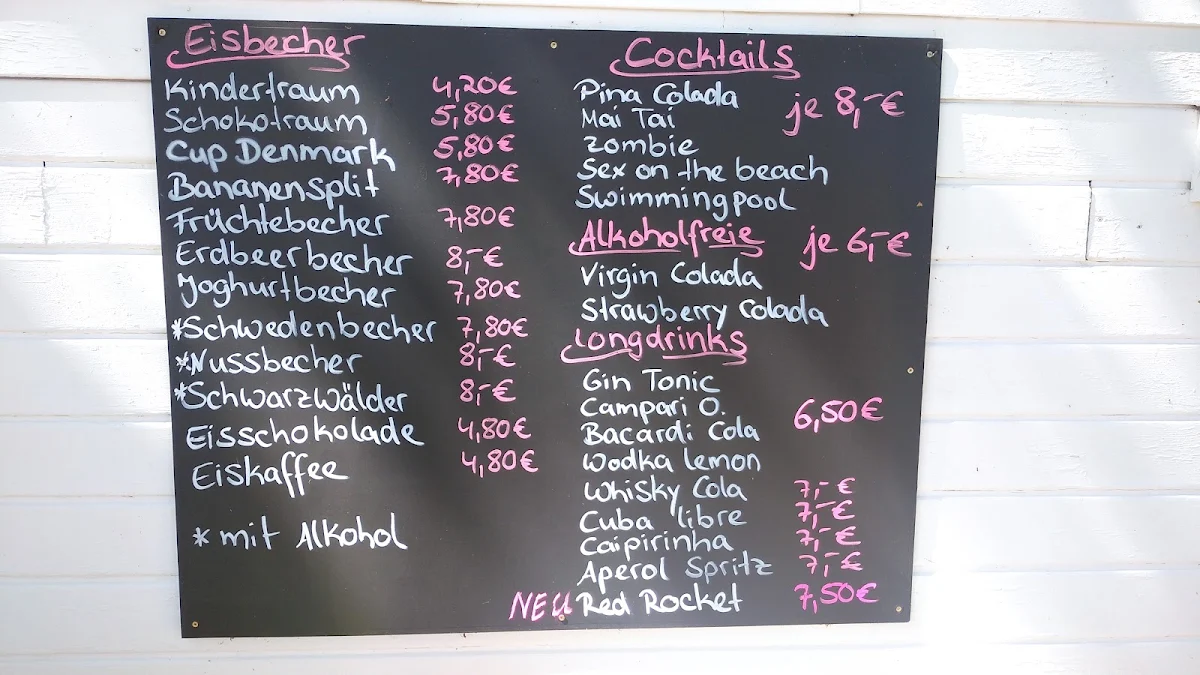 Eisbecher
Kindertraum 4,20€
Schokotraum 5,80€
Cup Denmark 5,80€
Bananensplit 7,80€
Früchtebecher 7,80€
Erdbeerbecher 8,-€
Joghurtbecher 7,80€
*Schwedenbecher 7,80€
*Nussbecher 8,-€
*Schwarzwälder 8,-€
Eisschokolade 4,80€
Eiskaffee 4,80€
* mit Alkohol
Cocktails
Pina Colada je 8,-€
Mai Tai
Zombie
Sex on the beach
Swimmingpool
Alkoholfreie je 6,-€
Virgin Colada
Strawberry Colada
Longdrinks
Gin Tonic
Campari O. 6,50€
Bacardi Cola
Wodka lemon
Whisky Cola 7,-€
Cuba libre 7,-€
Caipirinha 7,-€
Aperol Spritz 7,-€
NEU Red Rocket 7,50€